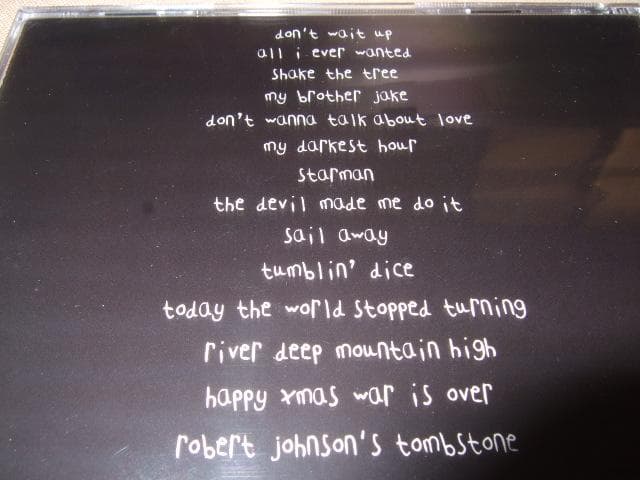 don't wait up
all i ever wanted
shake the tree
my brother jake
don't wanna talk about love
my darkest hour
starman
the devil made me do it
sail away
tumblin' dice
today the world stopped turning
river deep mountain high
happy xmas war is over
robert johnson's tombstone